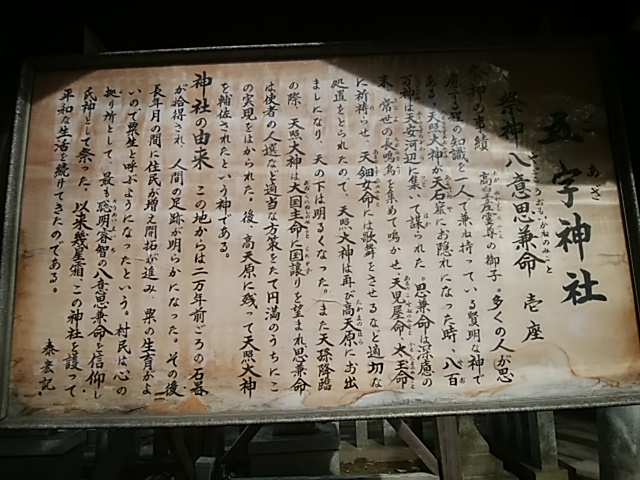 五字神社
祭神八意思兼命 壱座
祭神の事績 高皇産霊尊の御子。多くの人が思
慮する程の知識を一人で兼ね持っている賢明な神で
ある。天照大神が天石窟にお隠れになった時、八百
万神は天安河辺に集いて謀られた。思兼命は深慮の
末、常世の長鳴鳥を集めて鳴かせ、天児屋命、太玉命
に祈祷させ、天鈿女命には歌舞をさせるなど適切な
処置をとられたので、天照大神は再び高天原にお出
ましになり、天の下は明るくなった。また天孫降臨
の際、天照大神は大国主命に国譲りを望まれ思兼命
は使者の人選など適当な方策をたて円満のうちにこ
の実現をはかられた。後、高天原に残って天照大神
を補佐されたという神である。
神社の由来 この地からは二万年前ごろの石器
が拾得され、人間の足跡が明らかになった。その後
長年月の間に住民が増え開拓が進み、粟の生育がよ
いので粟生と呼ぶようになったという。村民は心の
拠り所として、最も聡明睿智の八意思兼命を信仰し
氏神として祭った。以来幾星霜、この神社を護って
平和な生活を続けてきたのである。
泰宏記。